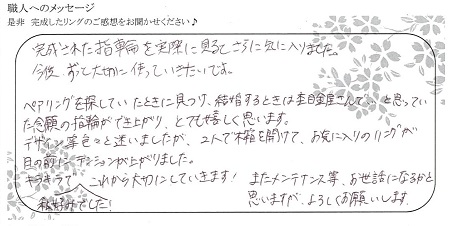 職人へのメッセージ
是非 完成したリングのご感想をお聞かせください♪
完成された指輪を実際に見てさらに気に入りました。
今後、ずっと大切に使っていきたいです。
ペアリングを探していたときに見つけ、結婚するときは杢目金屋さんで…と思ってい
た念願の指輪ができ上がり、とても嬉しく思います。
デザイン等色々と迷いましたが、2人で木箱を開けて、お気に入りのリングが
目の前にテンションが上がりました。
キラキラで、これから大切にしていきます!
私好みでした!
またメンテナンス等、お世話になるかと
思いますが、よろしくお願いします。